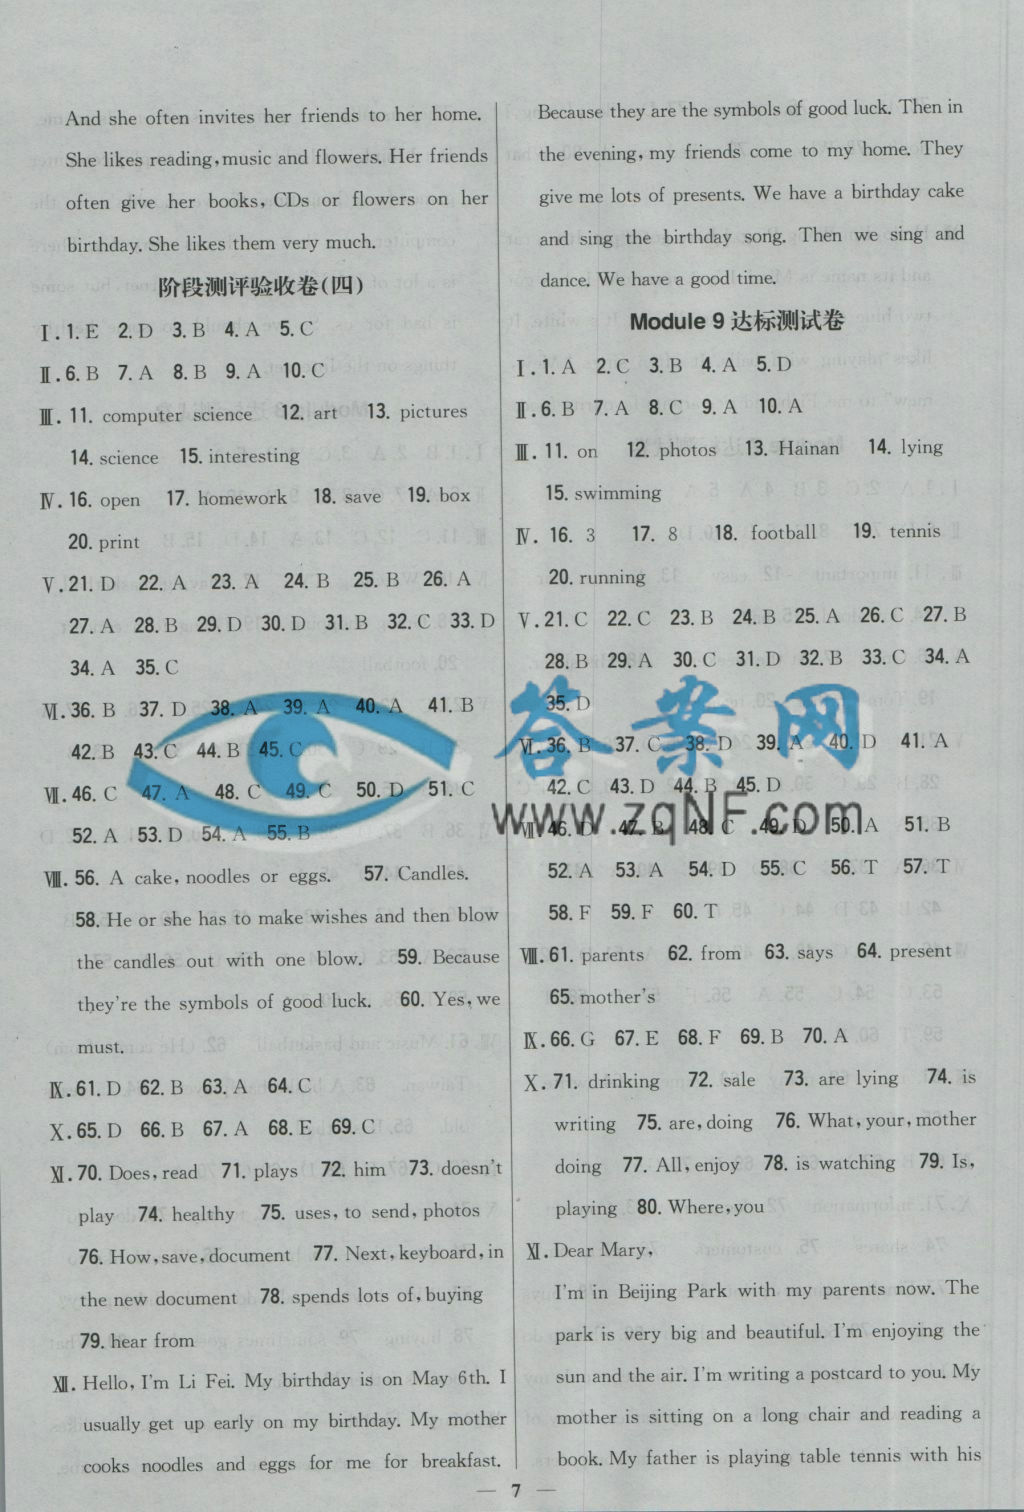 And she often invites her friends to her home.
She likes reading, music and flowers. Her friends
often give her books, CDs or flowers on her
birthday. She likes them very much.
阶段测评验收卷(四)
Ⅰ. 1. E 2. D 3. B 4. A 5. C
Ⅱ. 6. B 7. A 8. B 9. A 10. C
Ⅲ. 11. computer science 12. art 13. pictures
14. science 15. interesting
Ⅳ. 16. open 17. homework 18. save 19. box
20. print
Ⅴ. 21. D 22. A 23. A 24. B 25. B 26. A
27. A 28. B 29. D 30. D 31. B 32. C 33. D
34. A 35. C
Ⅵ. 36. B 37. D 38. A 39. A 40. A 41. B
42. B 43. C 44. B 45. C
Ⅶ. 46. C 47. A 48. C 49. C 50. D 51. C
52. A 53. D 54. A 55. B
Ⅷ. 56. A cake, noodles or eggs. 57. Candles.
58. He or she has to make wishes and then blow
the candles out with one blow. 59. Because
they're the symbols of good luck. 60. Yes, we
must.
Ⅸ. 61. D 62. B 63. A 64. C
Ⅹ. 65. D 66. B 67. A 68. E 69. C
Ⅺ. 70. Does, read 71. plays 72. him 73. doesn't
play 74. healthy 75. uses, to send, photos
76. How, save, document 77. Next, keyboard, in
the new document 78. spends lots of, buying
79. hear from
Ⅻ. Hello, I'm Li Fei. My birthday is on May 6th. I
usually get up early on my birthday. My mother
cooks noodles and eggs for me for breakfast.
Because they are the symbols of good luck. Then in
the evening, my friends come to my home. They
give me lots of presents. We have a birthday cake
and sing the birthday song. Then we sing and
dance. We have a good time.
Module 9 达标测试卷
Ⅰ. 1. A 2. C 3. B 4. A 5. D
Ⅱ. 6. B 7. A 8. C 9. A 10. A
Ⅲ. 11. on 12. photos 13. Hainan 14. lying
15. swimming
Ⅳ. 16. 3 17. 8 18. football 19. tennis
20. running
Ⅴ. 21. C 22. C 23. B 24. B 25. A 26. C 27. B
28. B 29. A 30. C 31. D 32. B 33. C 34. A
35. D
Ⅵ. 36. B 37. C 38. D 39. A 40. D 41. A
42. C 43. D 44. B 45. D
Ⅶ. 46. D 47. B 48. C 49. D 50. A 51. B
52. A 53. A 54. D 55. C 56. T 57. T
58. F 59. F 60. T
Ⅷ. 61. parents 62. from 63. says 64. present
65. mother's
Ⅸ. 66. G 67. E 68. F 69. B 70. A
Ⅹ. 71. drinking 72. sale 73. are lying 74. is
writing 75. are, doing 76. What, your, mother
doing 77. All, enjoy 78. is watching 79. Is,
playing 80. Where, you
Ⅺ. Dear Mary,
I'm in Beijing Park with my parents now. The
park is very big and beautiful. I'm enjoying the
sun and the air. I'm writing a postcard to you. My
mother is sitting on a long chair and reading a
book. My father is playing table tennis with his
答案网
www.zqNF.com
— 7 —